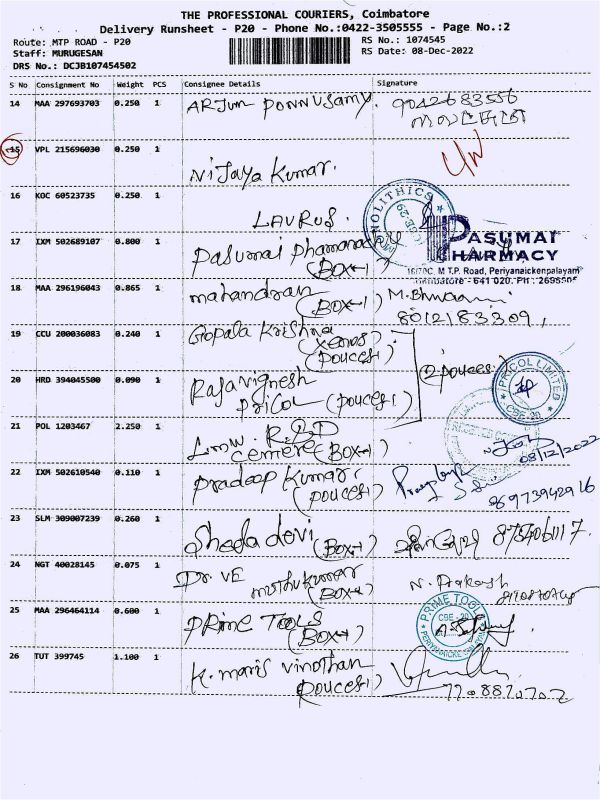 THE PROFESSIONAL COURIERS, Coimbatore
Delivery Runsheet - P20 - Phone No.:0422-3505555 - Page No.:2
Route: MTP ROAD - P20
Staff: MURUGESAN
DRS No.: DCJB107454502
RS No.: 1074545
RS Date: 08-Dec-2022
S No Consignment No Weight PCS Consignee Details Signature
14 MAA 297693703 0.250 1 ARJUN PONNUSAMY. 9042683556
15 VPL 215696030 0.250 1
Nijaya Kumar.
16 KOC 60523735 0.250 1
LAURUS.
MONOLITHICS
CBE-29
17 IXM 502689107 0.800 1 Pasumai
(BOX-1)
PASUMAI
PHARMACY
M.T.P. Road, Periyanaickenpalayam
Coimbatore - 641 020. PH : 2696505
18 MAA 296196043 0.865 1 mahandran
(BOX-1)
8012183309,
19 CCU 200036083 0.240 1 Gopala Krishna
(pouces1)
(2 pouces)
20 HRD 394045500 0.090 1 Rajavignesh
Pricol (pouces1)
PRICOL LIMITED
CBE-20
21 POL 1203467 2.250 1 Lmw. R&D
centere (BOX-1)
08/12/2022
22 IXM 502610540 0.110 1 Pradeep Kumar.
(pouces1)
86973942916
23 SLM 309007239 0.260 1 Sheela devi (Box-1)
24 NGT 40028145 0.075 1 Dr. VE muthukumar
(BOX-1)
N. Prakash
25 MAA 296464114 0.600 1 PRime TOOLS
(BOX-1)
PRIME TOOLS
CBE - 20
26 TUT 399745 1.100 1 K. maris vinothan
(pouces1)
7708870702